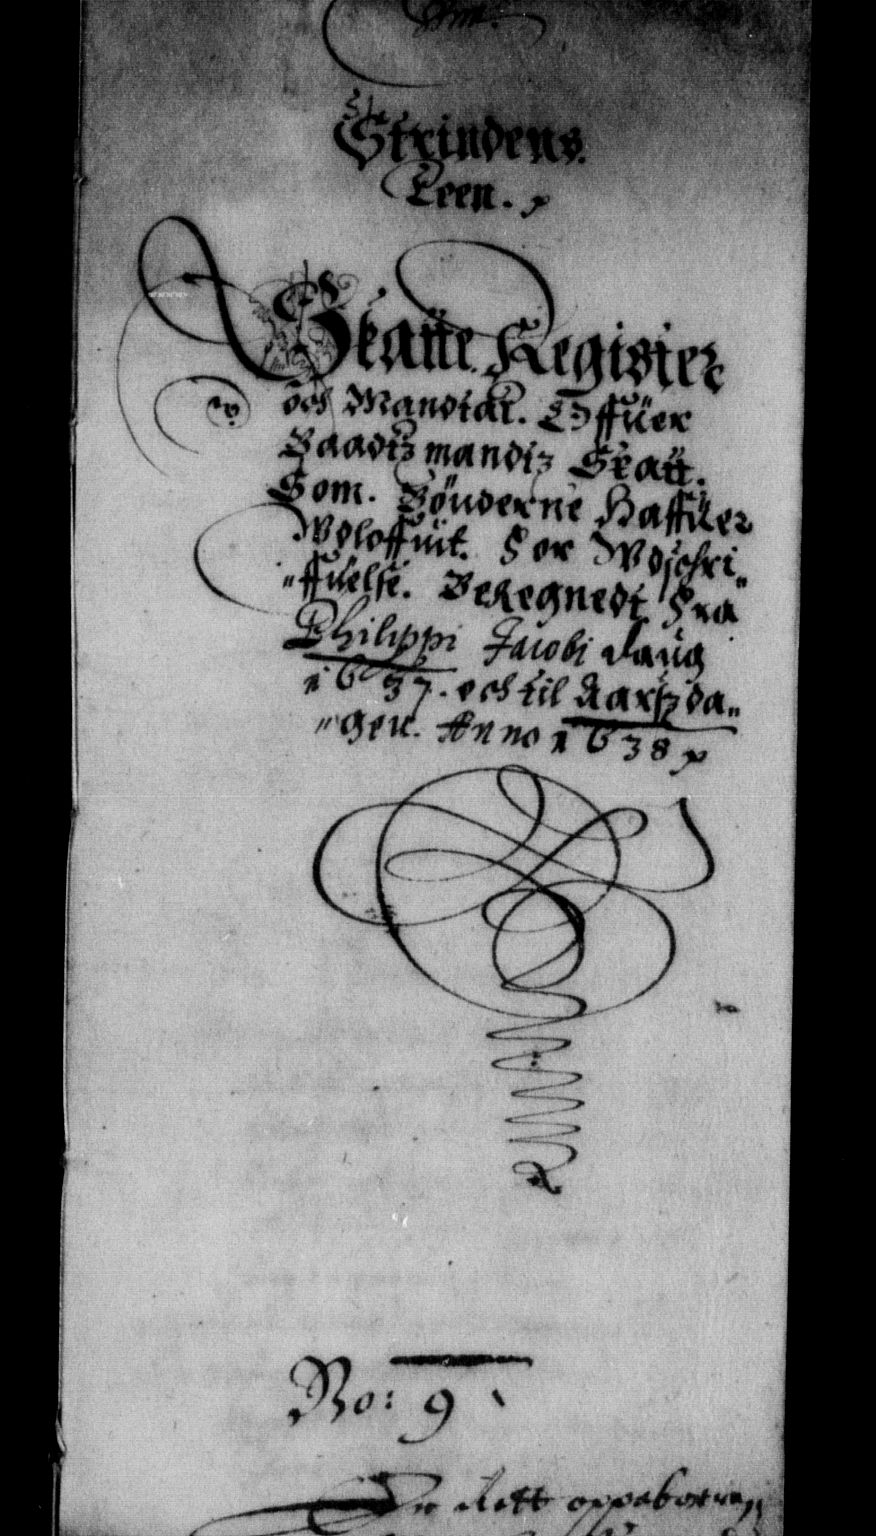 Strindens
Leen.
Skatte Register
och Mandtal. Offuer
Baadtzmandtz Skatt.
Som. Bönderne Haffuer
Wdloffuit. For Wdschri„
„ffuelse. Beregnedt Fra
Philippi Jacobi daug
1637. och til Aarsz da„
„gen. Anno 1638
No: 9
dett oppeberren„